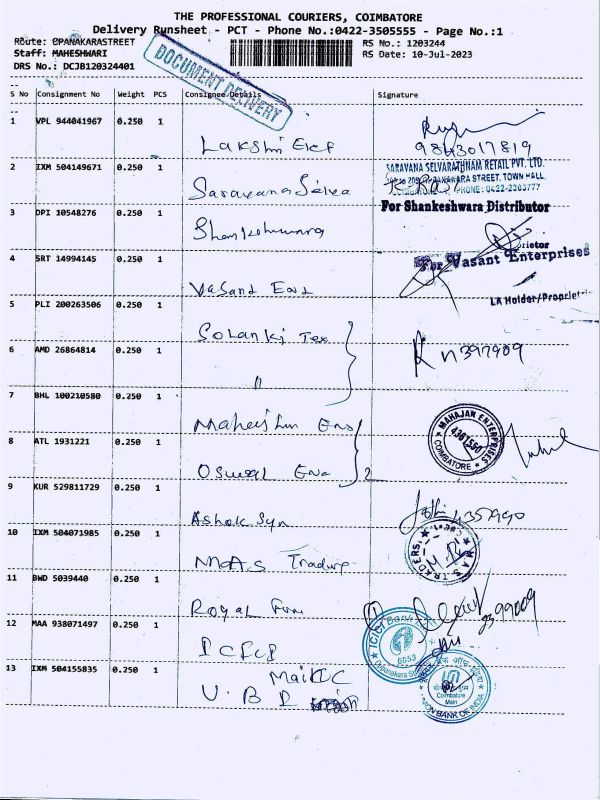 THE PROFESSIONAL COURIERS, COIMBATORE
Delivery Runsheet - PCT - Phone No.:0422-3505555 - Page No.:1
Route: OPANAKARASTREET
Staff: MAHESHWARI
DRS No.: DCJB120324401
RS No.: 1203244
RS Date: 10-Jul-2023
DOCUMENT DELIVERY
S No Consignment No Weight PCS Consignee Details Signature
1 VPL 944041967 0.250 1
Lakshmi Elec
9843017819
2 IXM 504149671 0.250 1
Saravana Selva
SARAVANA SELVARATHNAM RETAIL PVT. LTD.
STREET, TOWN HALL
PHONE: 0422-2303777
3 DPI 10548276 0.250 1
Shankeshwara
For Shankeshwara Distributor
4 SRT 14994145 0.250 1
Vasant Ent
For Vasant Enterprises
5 PLI 200263506 0.250 1
Solanki Tex
6 AMD 26864814 0.250 1
"
7 BHL 100210580 0.250 1
Ent
MAHAJAN ENTERPRISES
COIMBATORE
8 ATL 1931221 0.250 1
Oswal Ent 2
9 KUR 529811729 0.250 1
Ashok Syn
10 IXM 504071985 0.250 1
M.A.S Trading
M.A.S. TRADERS
11 BWD 5039440 0.250 1
Royal Furn
12 MAA 938071497 0.250 1
ICICI
ICICI Bank
6053
13 IXM 504155835 0.250 1
U.B.I
Coimbatore
Main
UNION BANK OF INDIA